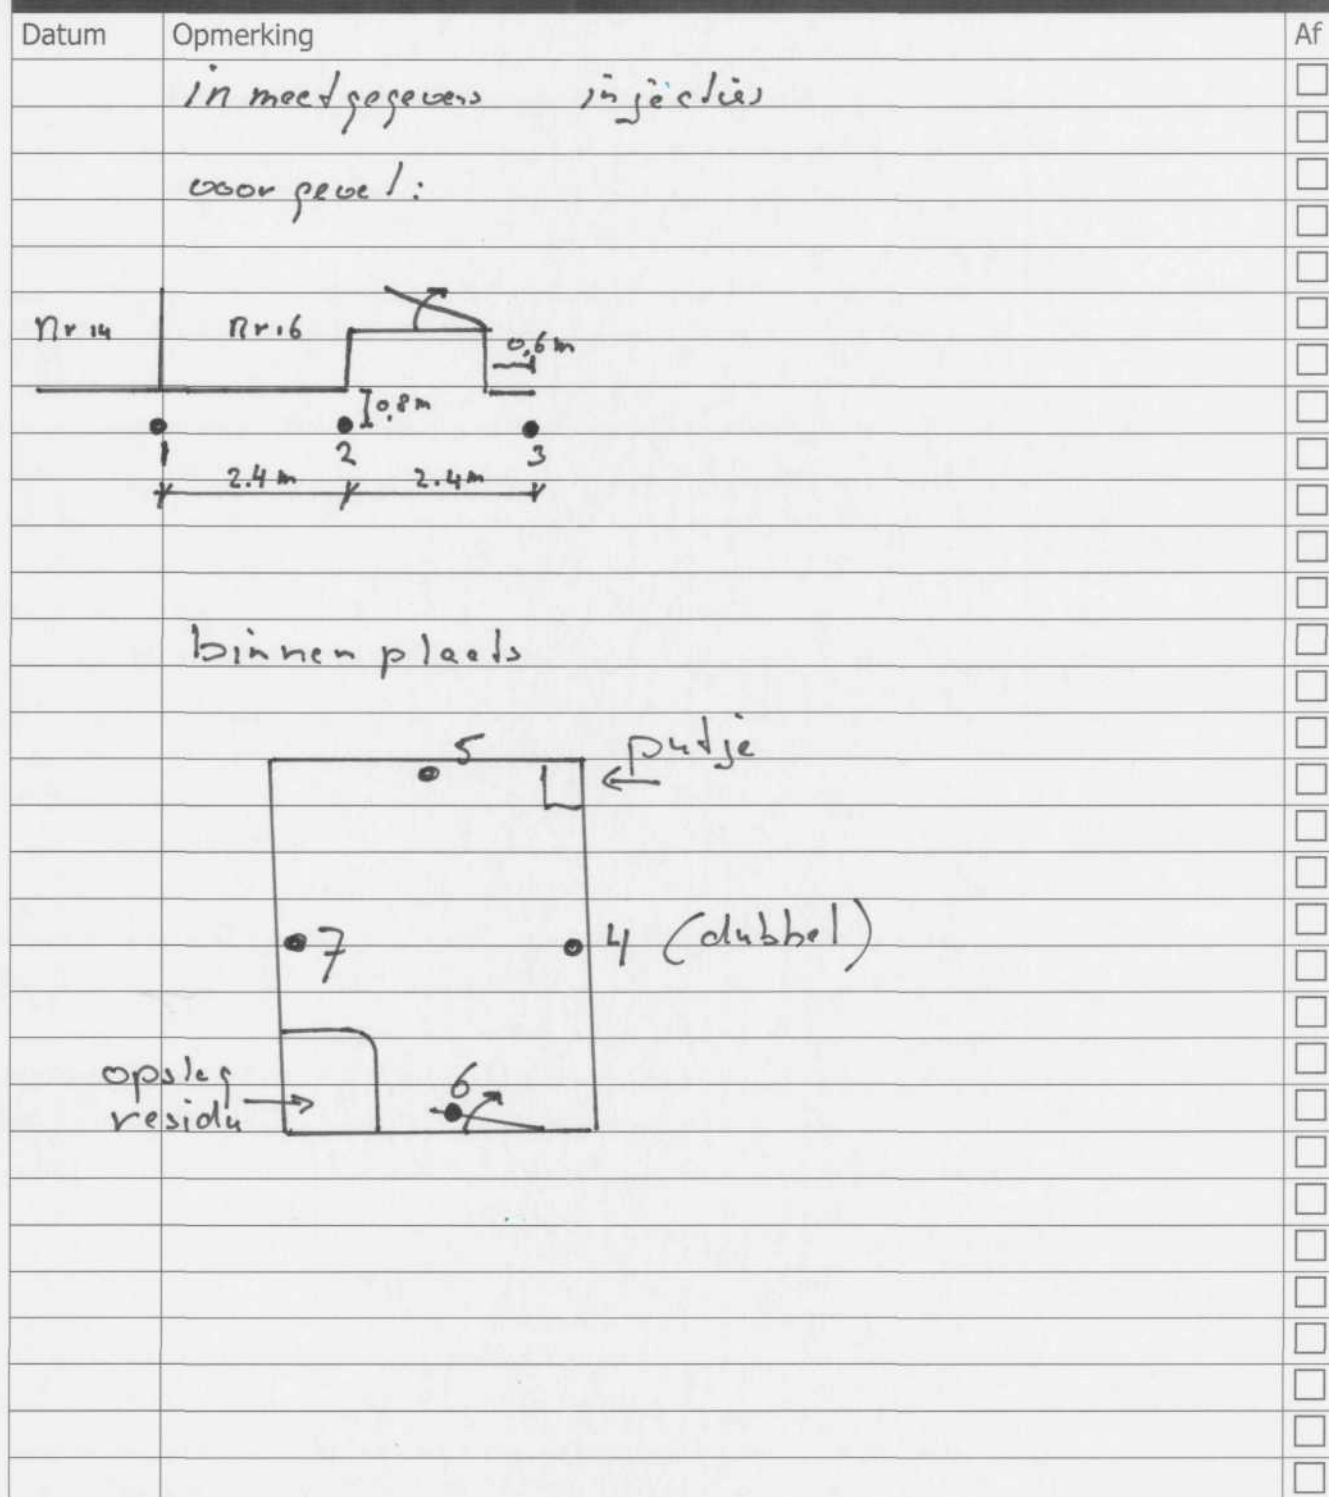 Datum Opmerking Af
inmeetgegevens injecties
voorgevel:
nr 14 nr 16
0,6m
0,8m
1 2 3
2.4m 2.4m
binnenplaats
5 putje
7 4 (dubbel)
opslag 6
residu